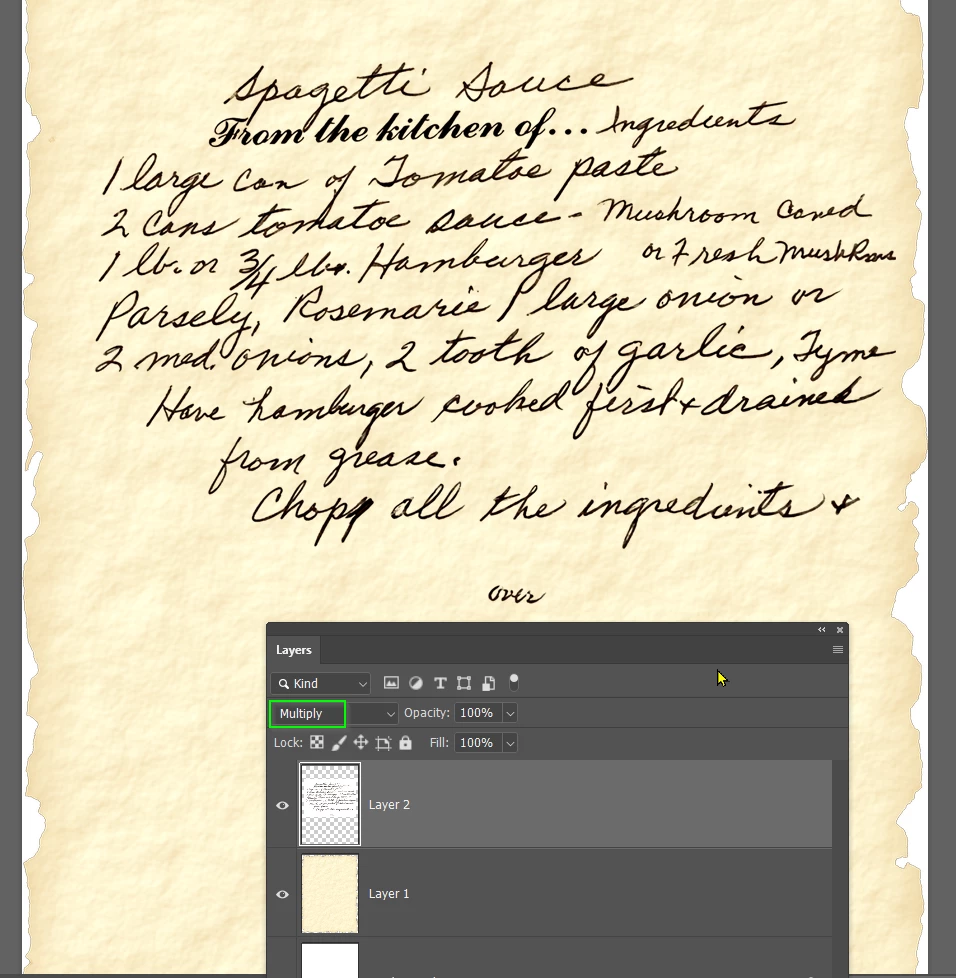 Spagetti Sauce
From the kitchen of... Ingredients
1 large can of Tomatoe paste
2 cans tomatoe sauce - Mushroom Caned
1 lb. or 3/4 lbs. Hamburger or Fresh MushRms
Parsely, Rosemarie 1 large onion or
2 med. onions, 2 tooth of garlic, Tyme
Have hamburger cooked first & drained
from grease.
Chopp all the ingredients &
over
Layers
Kind
Multiply Opacity: 100%
Lock: Fill: 100%
Layer 2
Layer 1